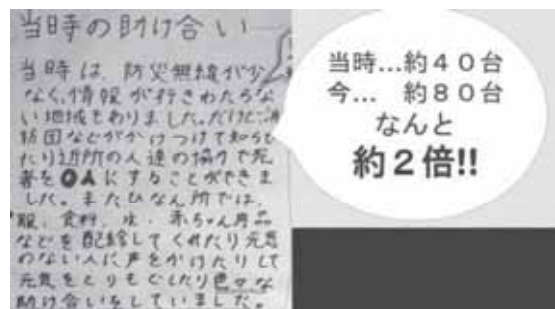 当時の助け合い
当時は、防災無線が少
なく、情報が行きわたらな
い地域もありました。だけど、消
防団などがかけつけて知らせ
たり近所の人達の協力で死
者を0人にすることができま
した。またひなん所では、
服、食料、水、赤ちゃん用品
などを配給してくれたり元気
のない人に声をかけたりして
元気をとりもどしたり色々な
助け合いをしていました。
当時…約40台
今… 約80台
なんと
約2倍!!